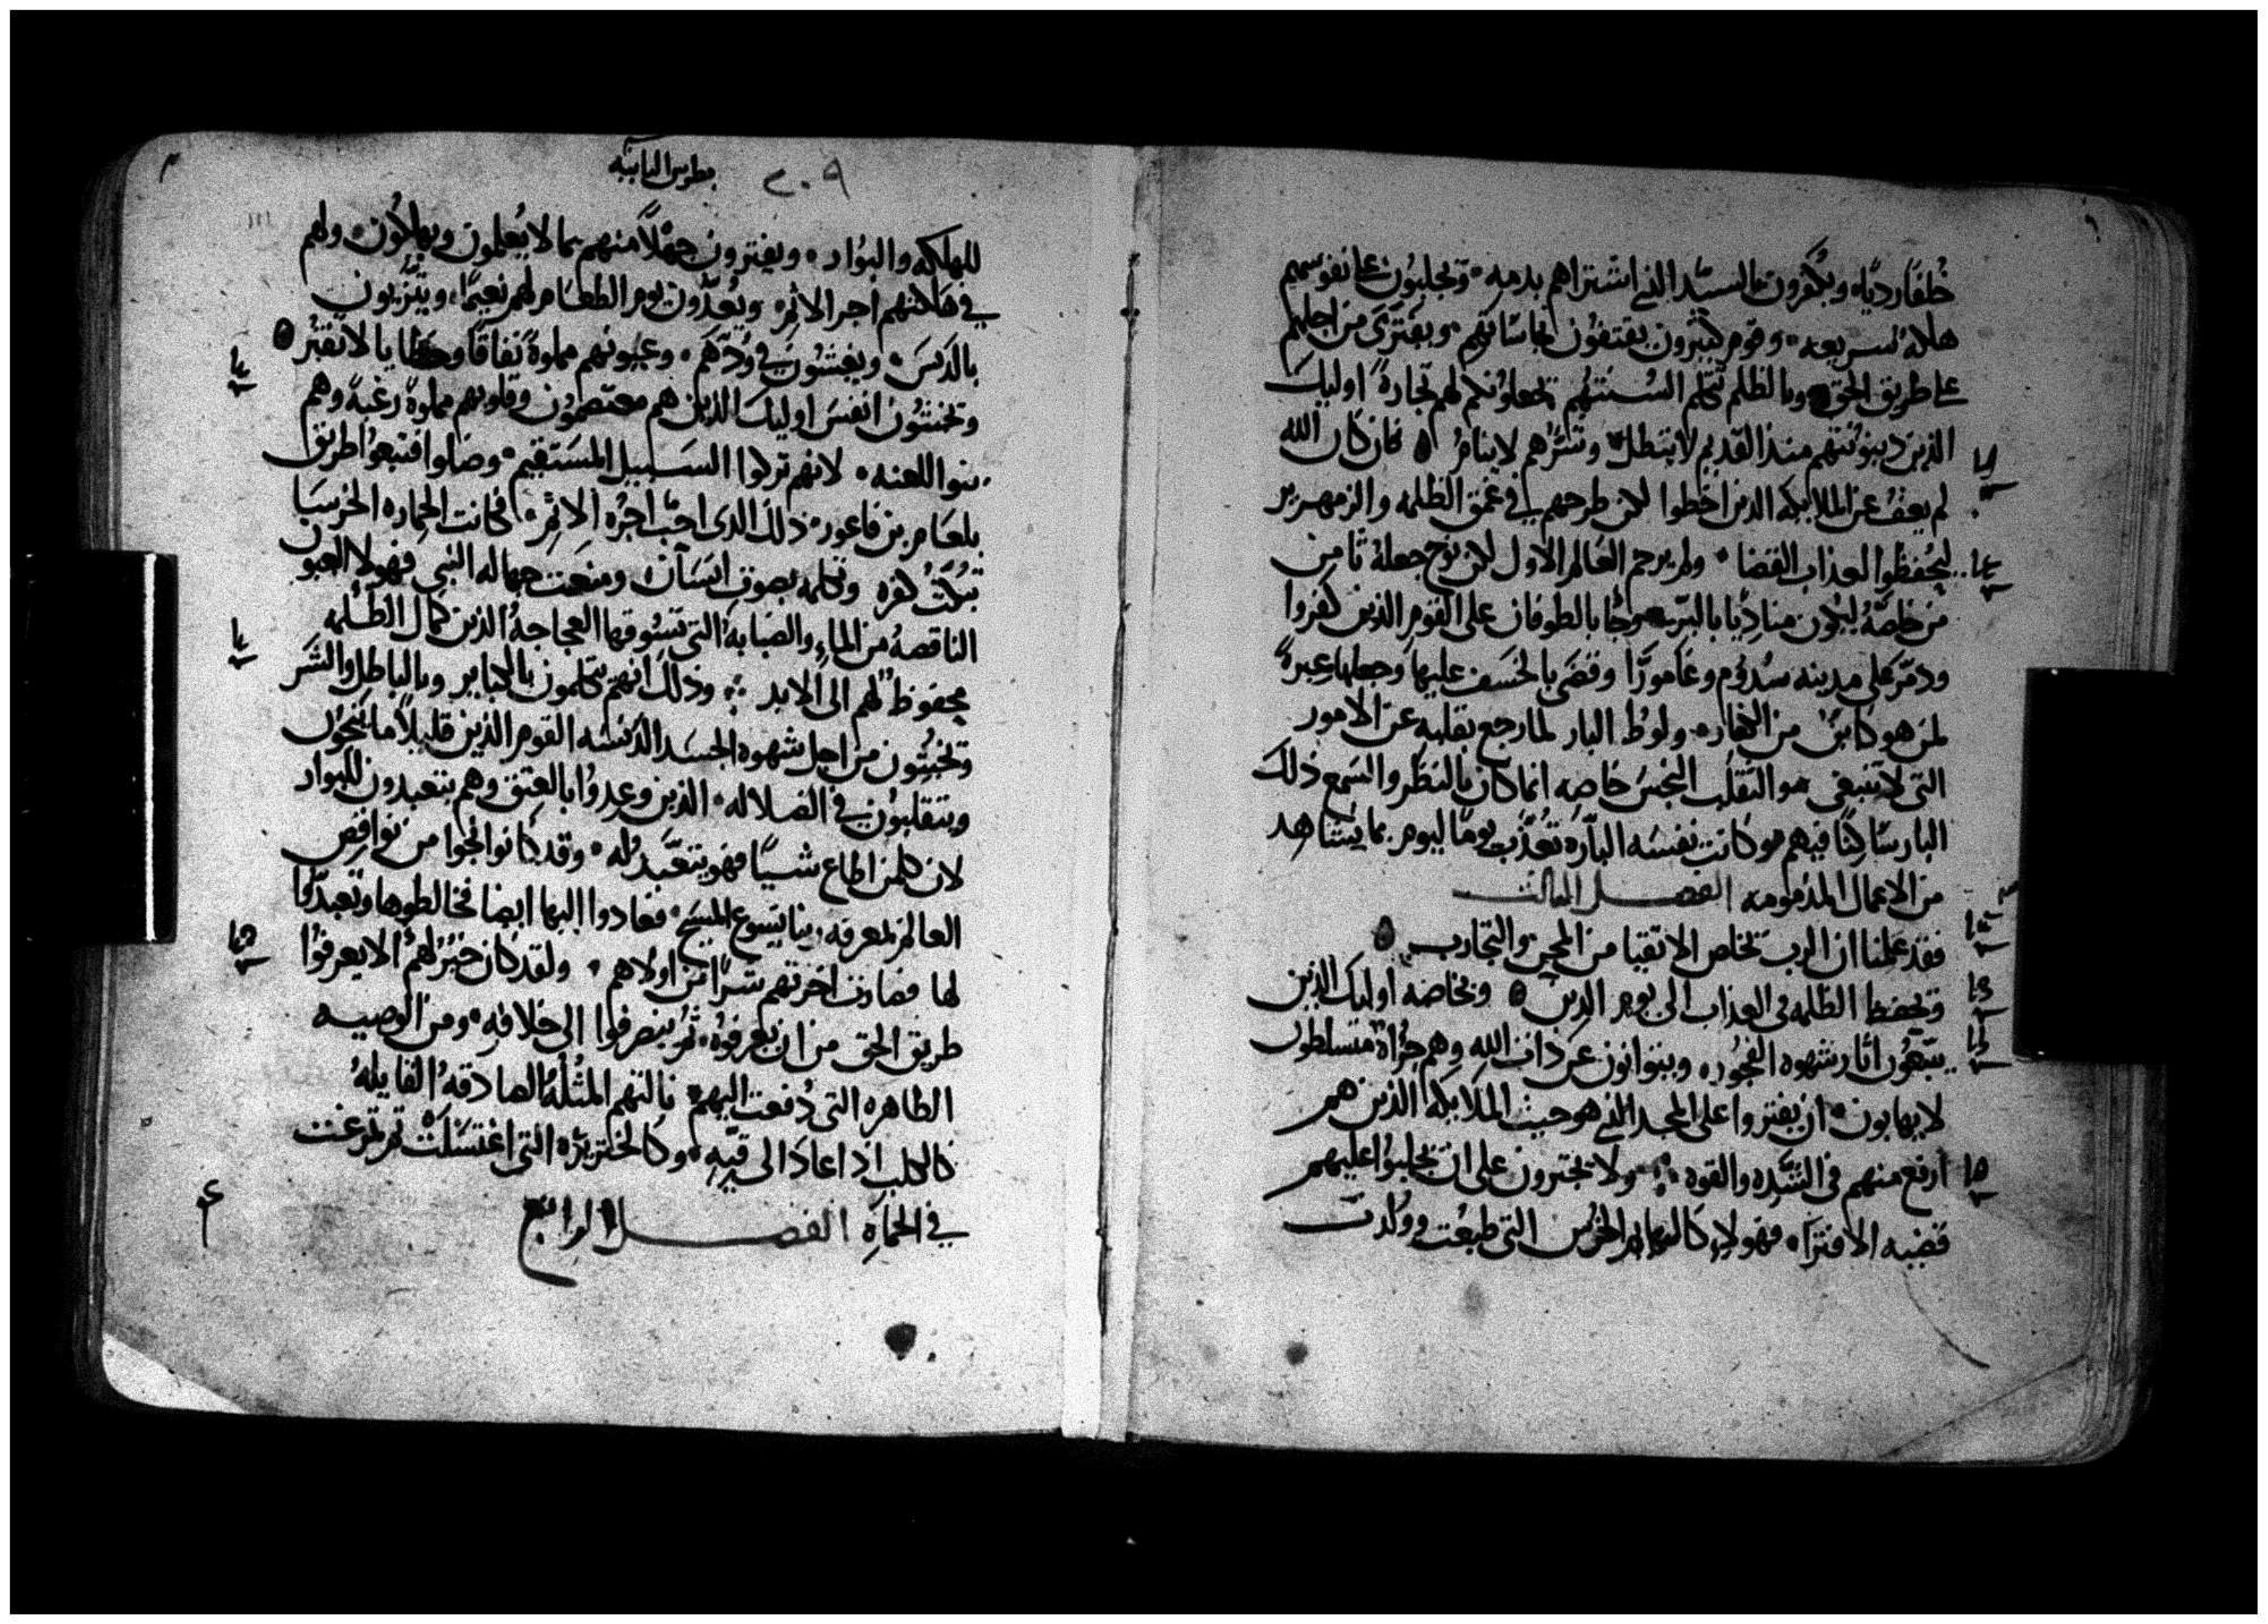 خلفًا رديًا ويكفرون بالسيد الذي اشتراهم بدمه وتجلبون على نفوسهم
هلاكه سريعه وقوم كثيرون يقتفون نجاساتهم ويفتري من اجلهم
على طريق الحق وبالظلم تكلم السنتهم يجعلونكم لهم تجارةً اوليك
الذين دينونتهم منذ القديم لا تبطل وشرهم لا ينام فان كان الله
لم يعف عن الملايكه الذين اخطوا لكن طرحهم في عمق الظلمه والزمهرير
ليحفظوا لعذاب القضا ولم يرحم العالم الاول لكن نوح جعله ثامن
من خلصه ليكون مناديًا بالبر وجا بالطوفان على القوم الذين كفروا
ودمر على مدينه سدوم وغامورًا وقضى بالخسف عليها وجعلها عبرةً
لمن هو كاين من الكفار ولوط البار لما رجع بقلبه عن الامور
التي لا تنبغي والتقلب النجس خاصه انما كان بالنظر والسمع ذلك
البار ساكنًا فيهم وكانت نفسه الباره تعذب يومًا ليوم بما يشاهد
من الاعمال المذمومه الفصل الثالث
فقد علمنا ان الرب يخلص الاتقيا من المحن والتجارب
وتحفظ الظلمه في العذاب الى يوم الدين وبخاصه اوليك الذين
يتبعون اثار شهوه الفجور ويتوانون عن ذات الله وهم جراة متسلطون
لا يهابون ان يفتروا على المجد الذي هو حيث الملايكه الذين هم
ارفع منهم في الشده والقوه ولا يجترون على ان يجلبوا عليهم
قضيه الافترا فهولاء كالبهايم الخرس التي طبعت وولدت
بطرس الثانيه ٢٠٩
للهلكه والبوار ويفترون جهلًا منهم بما لا يعلمون ويهلكون ولهم
في هلاكهم اجر الاثم ويعدون يوم الطعام لهم نعيمًا ويتزيون
بالدنس ويغشون في ودهم وعيونهم مملوة نفاقًا وخطايا لا تفتر
وتخنثون انفس اوليك الذين هم معتصمون وقلوبهم مملوة رغبة وهم
بنو اللعنه لانهم تركوا السبيل المستقيم وضلوا فتبعوا طريق
بلعام بن فاعور ذلك الذي احب اجره الاثم فكانت الحماره الخرسا
تبكت كفره وتكلمه بصوت انسان ومنعت جهاله النبي فهولا العيون
الناقصه من الماء والضبابه التي تسوقها العجاجه الذين كمال الظلمه
محفوظ لهم الى الابد وذلك انهم يتكلمون بالكباير وبالباطل والشر
وتخبثون من اجل شهوه الجسد الدنسه القوم الذين قليلًا ما ينجون
ويتقلبون في الضلاله الذين وعدوا بالعتق وهم يتعبدون للبوار
لان كلمن اطاع شيئًا فهو يتعبد له وقد كانوا نجوا من نواقص
العالم لمعرفه ربنا يسوع المسيح فعادوا اليها ايضا فخالطوها وتعبدوا
لها فصارت اخرتهم شرًا من اولاهم ولقد كان خير لهم الا يعرفوا
طريق الحق من ان يعرفوه ثم ينصرفوا الى خلافه ومن الوصيه
الطاهره التي دفعت اليهم نالتهم المثله الصادقه القايله
كالكلب اذا عاد الى قيه وكالخنزيره التي اغتسلت ثم تمرغت
في الحماه الفصل الرابع